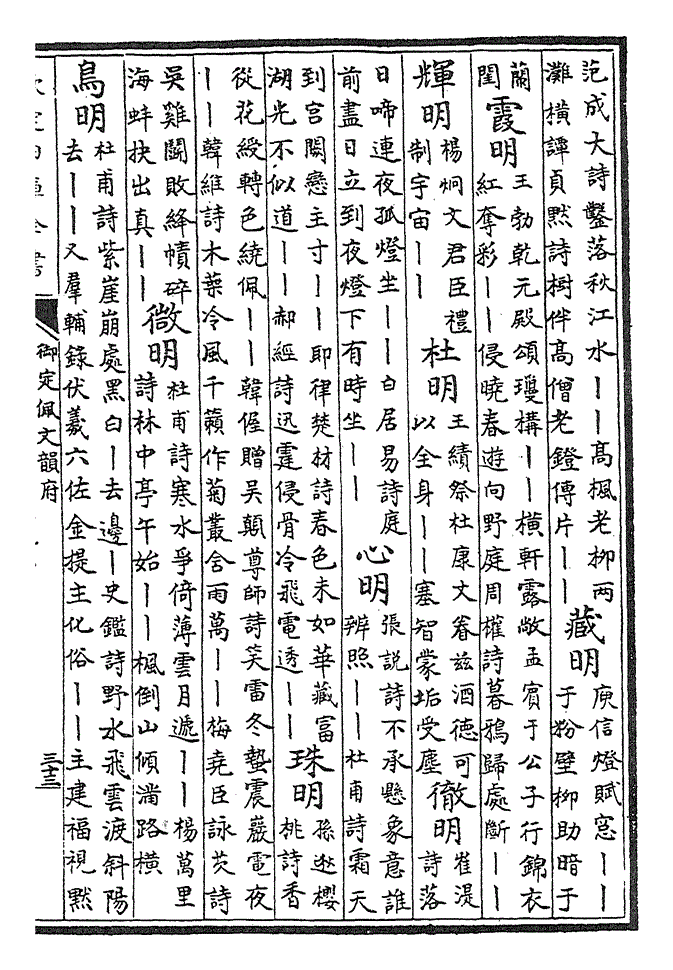 范成大詩鑿落秋江水丨丨髙楓老柳兩
灘橫譚貞黙詩樹伴髙僧老鐙傳片丨丨
藏明
庾信燈賦窓丨丨
于粉壁柳助暗于
蘭
閨
霞明
王勃乾元殿頌瓊構丨丨橫軒露敞孟賓于公子行錦衣
紅奪彩丨丨侵曉春遊向野庭周權詩暮鴉歸處斷丨丨
輝明
楊炯文君臣禮
制宇宙丨丨
杜明
王績祭杜康文眷兹酒德可
以全身丨丨塞智蒙垢受塵
徹明
崔湜
詩落
日啼連夜孤燈坐丨丨白居易詩庭
前盡日立到夜燈下有時坐丨丨
心明
張説詩不承懸象意誰
辨照丨丨杜甫詩霜天
到宫闗戀主寸丨丨耶律楚材詩春色未如華藏富
湖光不似道丨丨郝經詩迅霆侵骨冷飛電透丨丨
珠明
孫逖櫻
桃詩香
從花綬轉色繞佩丨丨韓偓贈吳顛尊師詩笑雷冬蟄震巖電夜
丨丨韓維詩木葉冷風千籟作菊叢含雨萬丨丨梅堯臣詠芡詩
吳雞鬭敗絳幘碎
海蚌抉出真丨丨
微明
杜甫詩寒水爭倚薄雲月遞丨丨楊萬里
詩林中亭午始丨丨楓倒山傾滿路橫
鳥明
杜甫詩紫崖崩處黑白丨去邊丨史鑑詩野水飛雲渡斜陽
去丨丨又羣輔錄伏羲六佐金提主化俗丨丨主建福視黙
御定佩文韻府
三十三